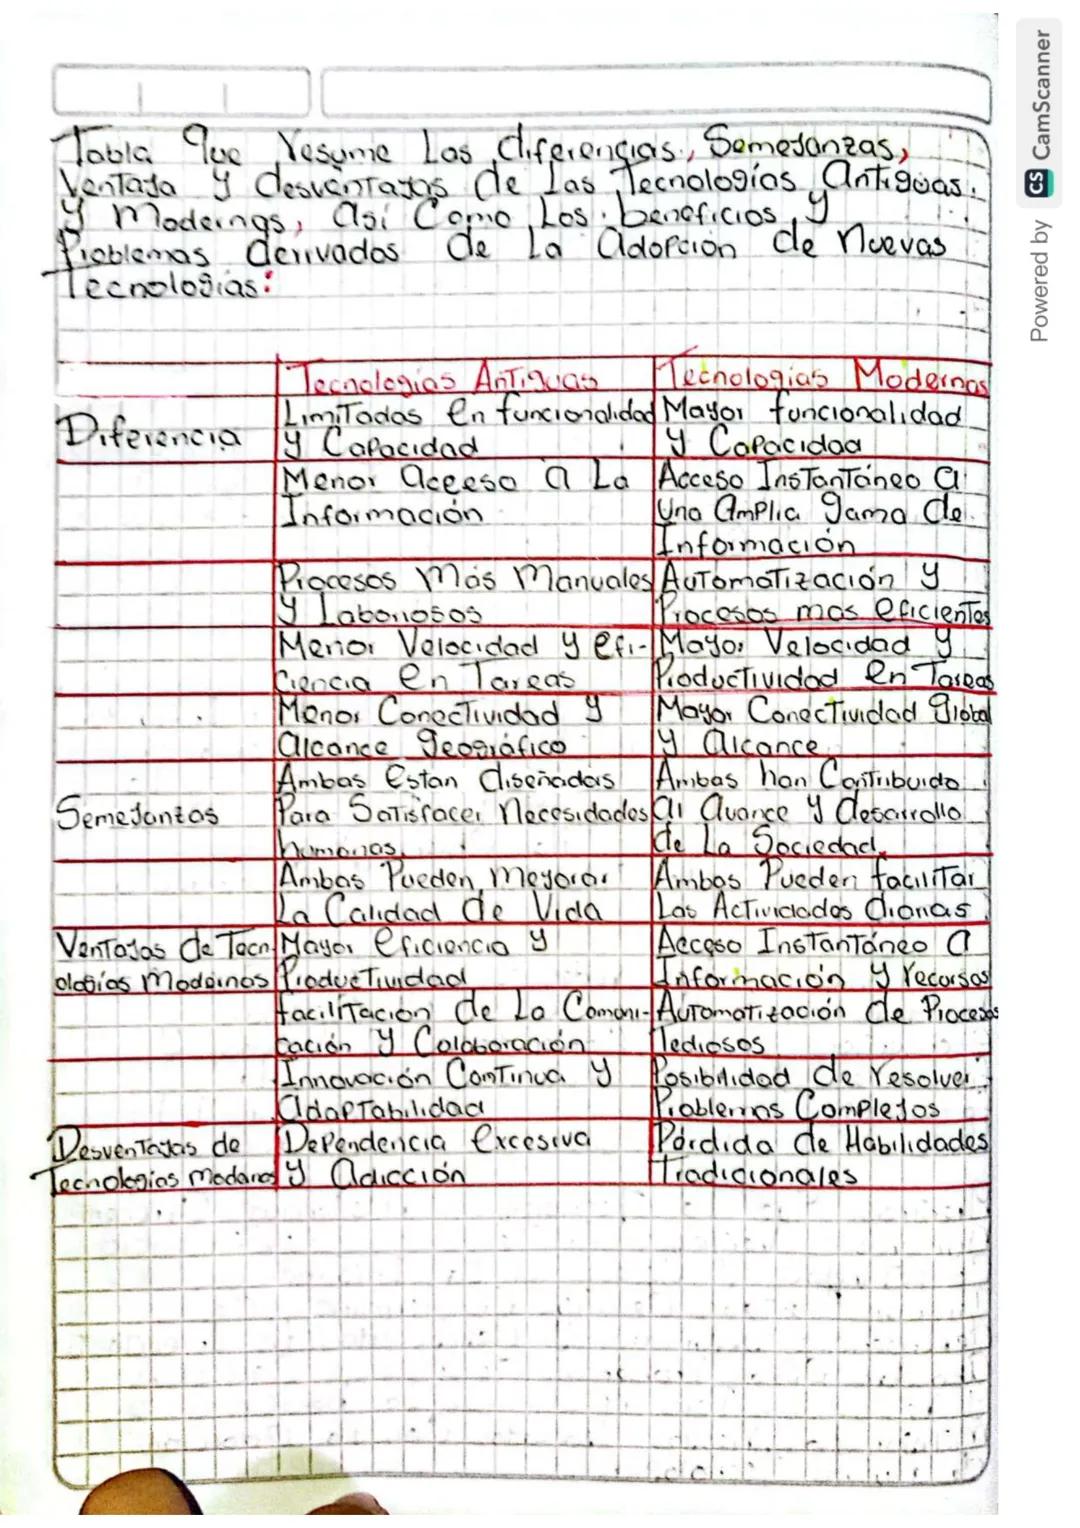 Tabla que resume Las diferencias, Semejanzas,
Ventaja y desventajas de las Tecnologías Antiguas
y Modernas, así Como Los beneficios y
Problemas derivados de La adopción de nuevas
Tecnologías:
Tecnologías Antiguas Tecnologías Modernas
Diferencia
Limitadas en funcionalidad Mayor funcionalidad
y Capacidad y Capacidad
Menor acceso a La Acceso Instantáneo a
Información una amplia gama de
Información
Procesos más Manuales Automatización y
y Laboriosos Procesos mas eficientes
Menor Velocidad y efi- Mayor Velocidad y
ciencia en Tareas Productividad en Tareas
Menor Conectividad y Mayor Conectividad global
alcance geográfico y alcance
Semejantas
Ambas estan diseñadas Ambas han Contribuido
Para Satisfacer necesidades al avance y desarrollo
humanas de La Sociedad.
Ambas Pueden mejorar Ambas Pueden facilitar
La Calidad de Vida Las Actividades diarias
Ventajas de Tecn- Mayor eficiencia y Acceso Instantáneo a
ologías Modernas Productividad Información y recursos
facilitación de La Comuni- Automatización de Procesos
cación y Colaboración Tediosos
Innovación Continua y Posibilidad de resolver
adaptabilidad Problemas Complejos
Desventajas de Dependencia excesiva Pérdida de Habilidades
Tecnologías Modernas y adicción Tradicionales
Powered by CS CamScanner